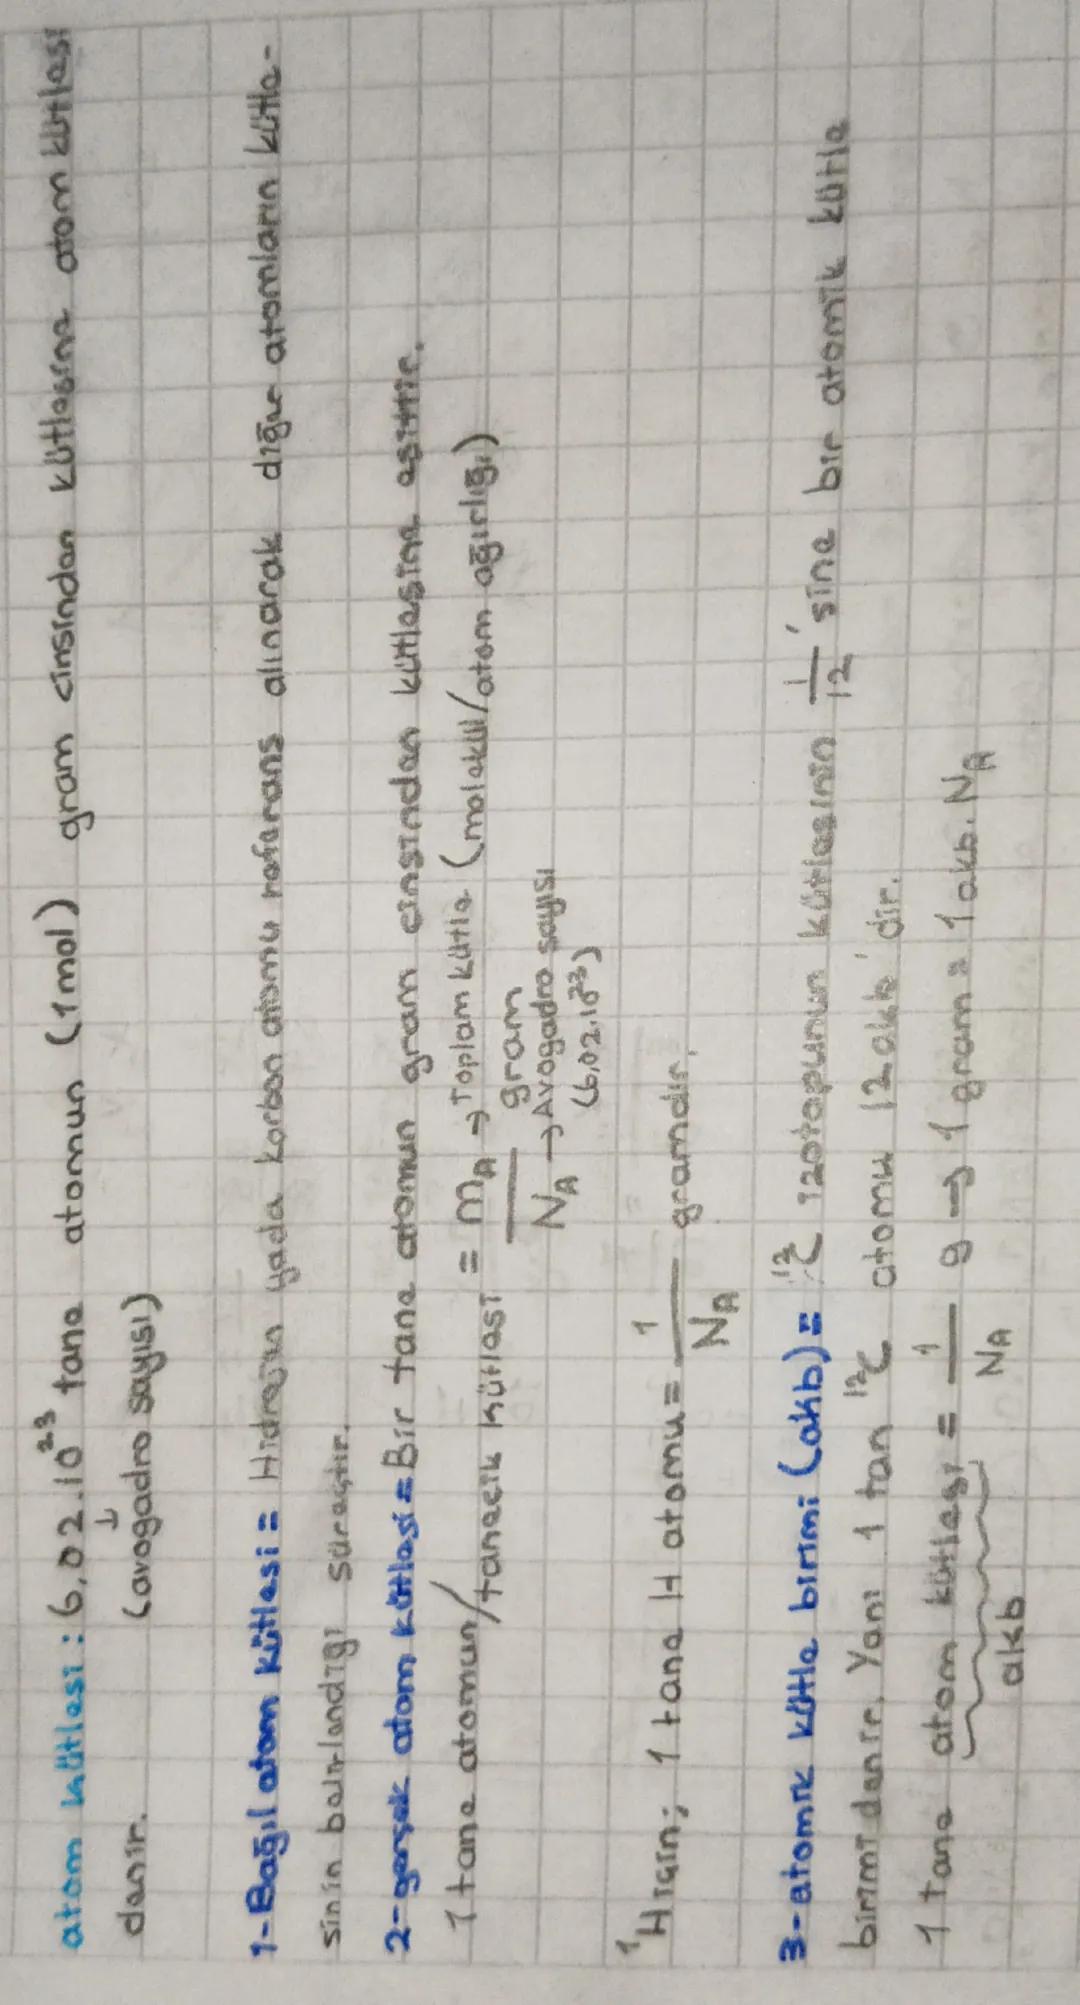 atom kütlesi : 6,02.10²³ tane atomun (1 mol) gram cinsinden kütlesine atom kütlesi
↓
(avogadro sayısı)
denir.
1-Bağıl atom kütlesi = Hidrojen yada karbon atomu referans alınarak diğer atomların kütle-
sinin belirlendiği süreçtir.
2-gerçek atom kütlesi = Bir tane atomun gram cinsinden kütlesine eşittir.
1 tane atomun/tanecik kütlesi = mA → Toplam kütle (molekül/atom ağırlığı)
gram
NA → Avogadro sayısı
(6,02.10²³)
¹H için; 1 tane H atomu = 1/NA gramdır.
3-atomik kütle birimi (akb) = ¹²C izotopunun kütlesinin 1/12'sine bir atomik kütle
birimi denir. Yani 1 tan ¹²C atomu 12 akb'dir.
1 tane atom kütlesi = 1/NA g → 1 gram = 1 akb.NA
akb